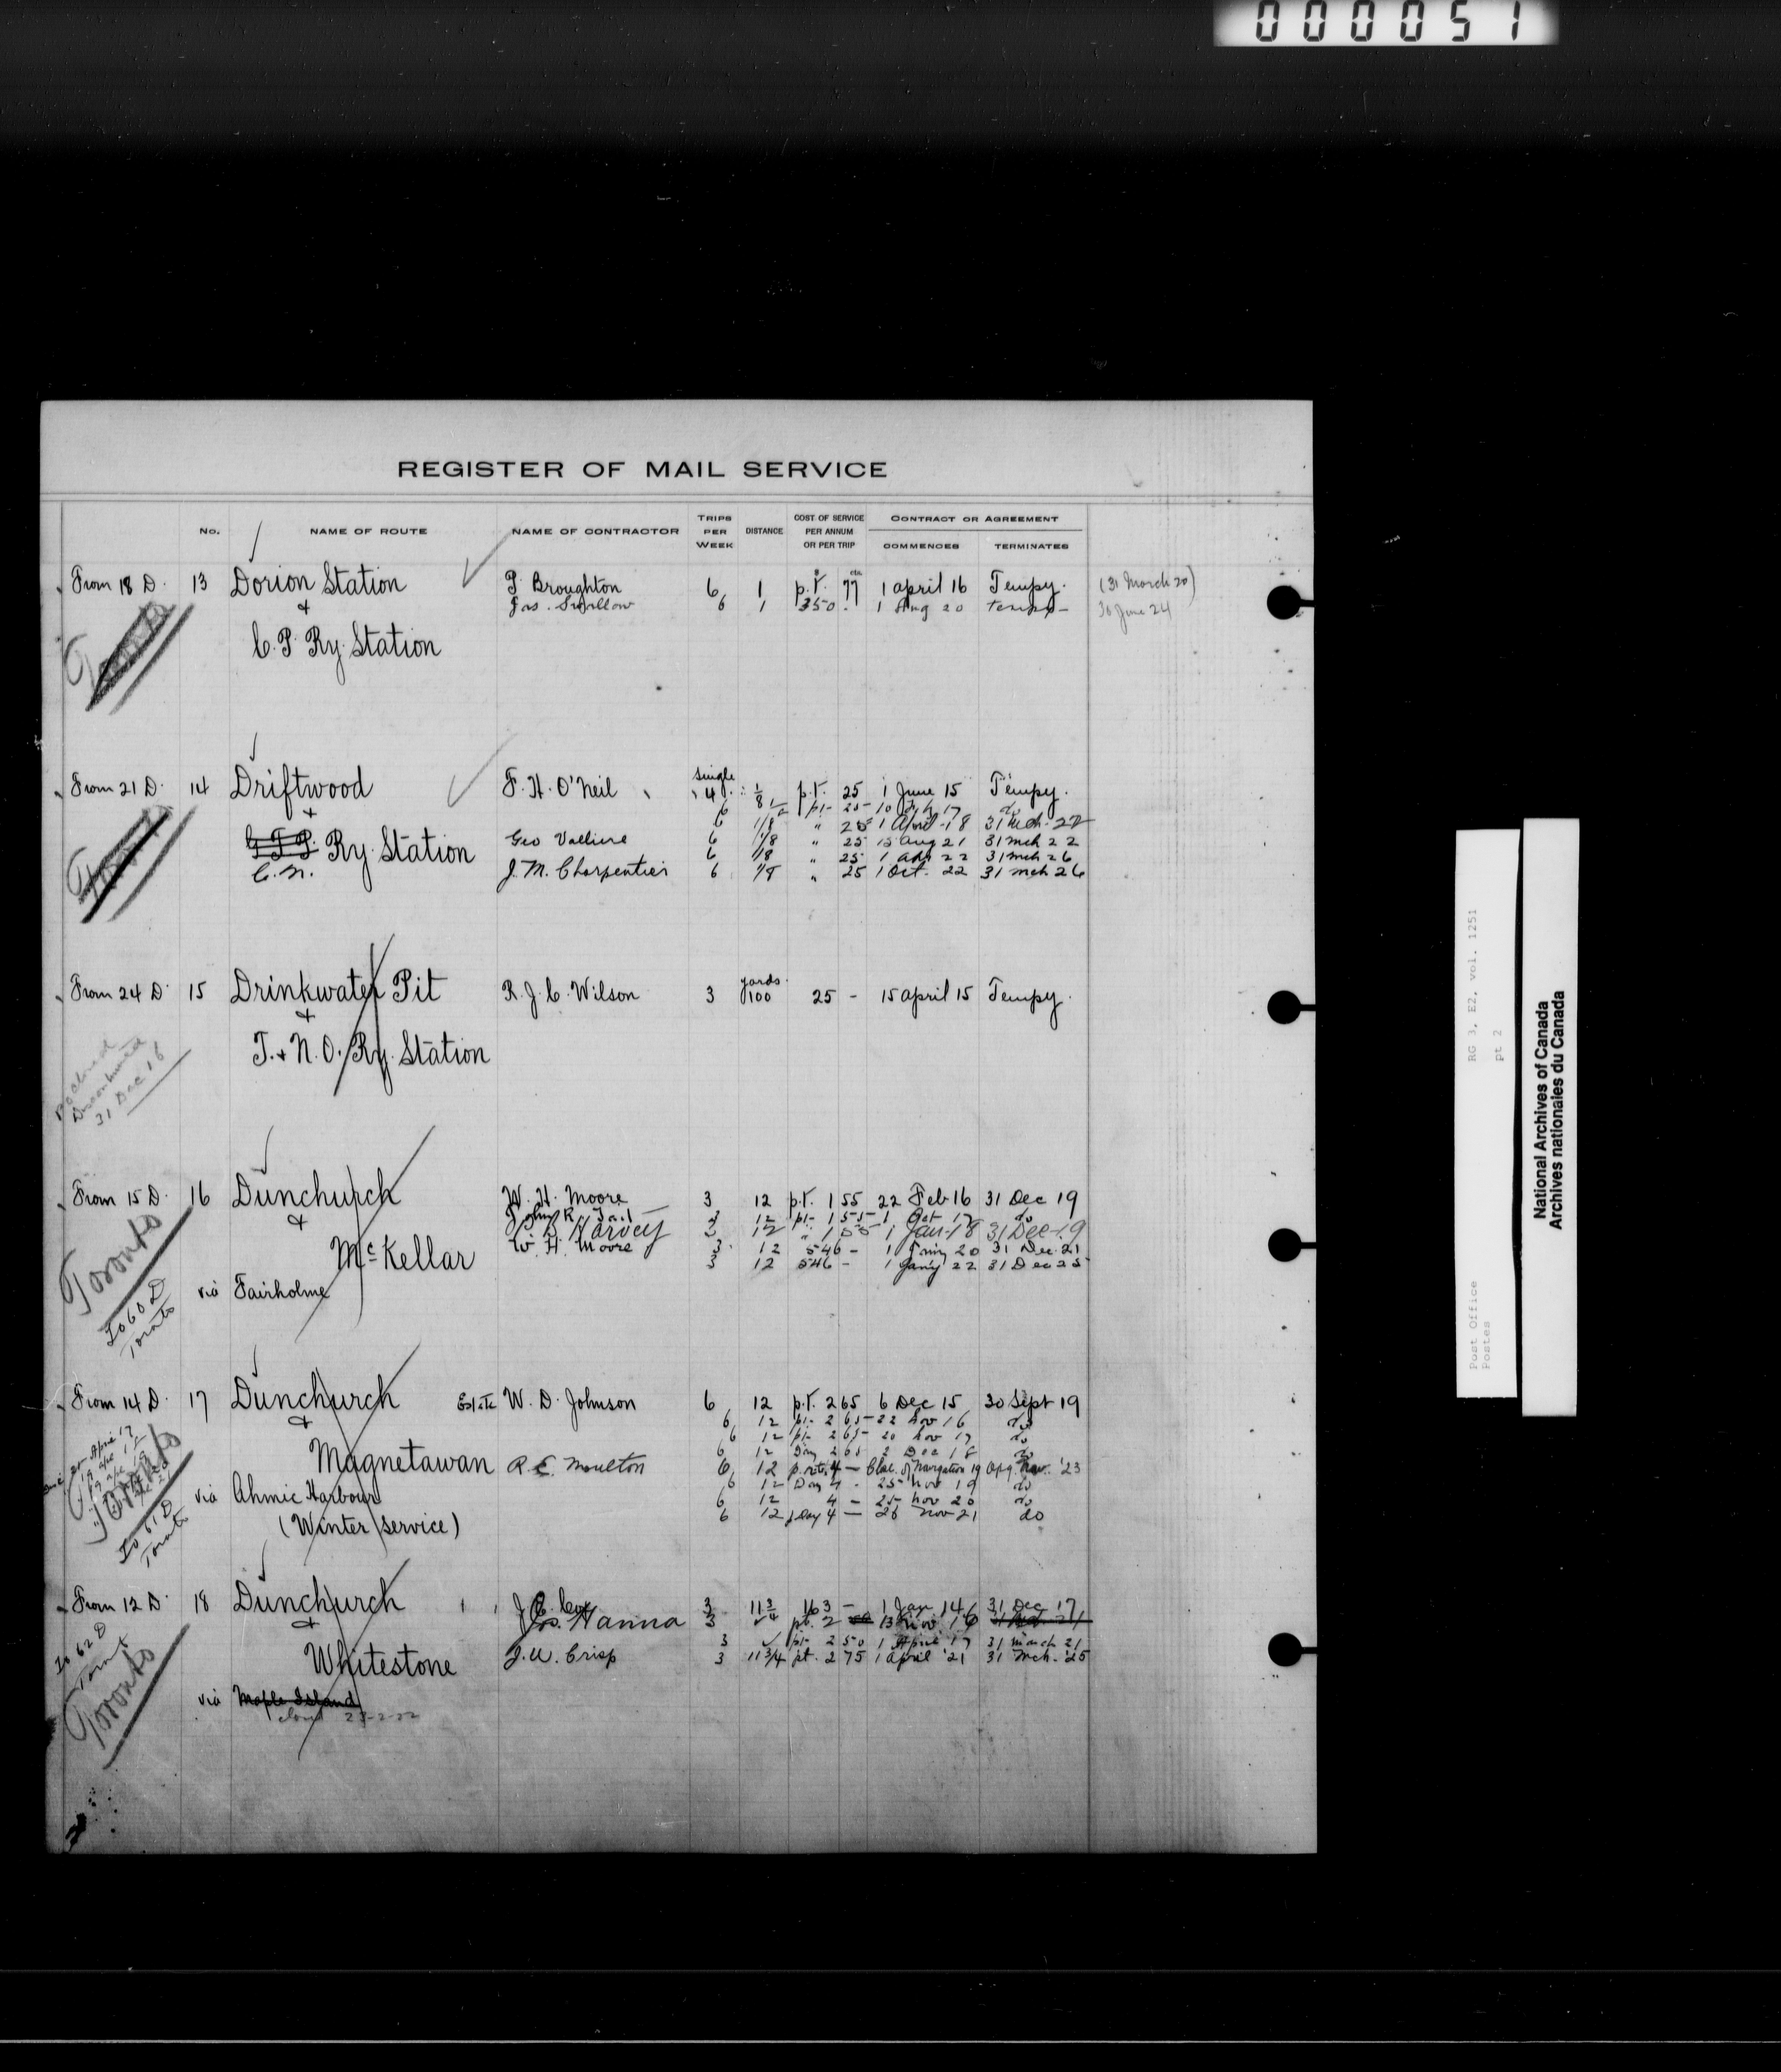 000051
REGISTER OF MAIL SERVICE
No. NAME OF ROUTE NAME OF CONTRACTOR TRIPS PER WEEK DISTANCE COST OF SERVICE PER ANNUM OR PER TRIP CONTRACT OR AGREEMENT COMMENCES TERMINATES
From 18 D. 13 Dorion Station T. Broughton 6 1 p.t. 77 1 April 16 Tempy. (31 March 20)
& Jas. Swallow 6 1 350 1 Aug 20 tempy 30 June 24
C.P. Ry. Station
From 21 D. 14 Driftwood F. H. O'Neil single 4 1/8 p.t. 25 1 June 15 Tempy.
& 6 pt- 25 10 17 do
6 1/8 " 25 1 April 18 31 Mch 22
G.T.P. Ry. Station Geo Valliere 6 1/8 " 25 15 Aug 21 31 mch 22
6 1/8 " 25 1 apr 22 31 mch 26
C.N. J. M. Charpentier 6 1/8 " 25 1 Oct. 22 31 mch 26
From 24 D. 15 Drinkwater Pit R. J. C. Wilson 3 yards 100 25 - 15 April 15 Tempy.
&
T. & N. O. Ry. Station
Discontinued
31 Dec 16
From 15 D. 16 Dunchurch W. H. Moore 3 12 p.t. 1 55 22 Feb 16 31 Dec 19
& John R. 12 pt- 1 55 1 Oct 17 do
Harvey 12 " 1 55 1 Jan 18 31 Dec 19
McKellar W. H. Moore 3 12 546 - 1 Jany 20 31 Dec 21
3 12 546 - 1 Jany 22 31 Dec 25
Toronto via Fairholme
To 60 D
Toronto
From 14 D. 17 Dunchurch Estate W. D. Johnson 6 12 p.t. 2 65 6 Dec 15 30 Sept 19
& 6 12 pt- 2 65 22 Nov 16 do
6 12 pt- 2 65 20 Nov 17 do
6 12 2 65 2 Dec 18 do
Magnetawan R. E. Moulton 6 12 p. rt. 4 - Close of Navigation 19 Opg. Nav. '23
6 12 Day 4 - 25 Nov 19 do
via Ahmic Harbour 6 12 4 - 25 Nov 20 do
(Winter service) 6 12 Day 4 - 26 Nov 21 do
Toronto
To 61 D
Toronto
From 12 D. 18 Dunchurch 3 11 3/4 163 - 1 Jan 14 31 Dec 17
& Jos. Hanna 3 pt. 2 13 Nov. 16
3 pt- 2 50 1 April 17 31 March 21
Whitestone J. W. Crisp 3 11 3/4 pt. 2 75 1 April '21 31 Mch. '25
To 62 D
Toront
Toronto
via Maple Island
closed 25-2-22
RG 3, E2, vol. 1251
pt 2
Post Office
Postes
National Archives of Canada
Archives nationales du Canada